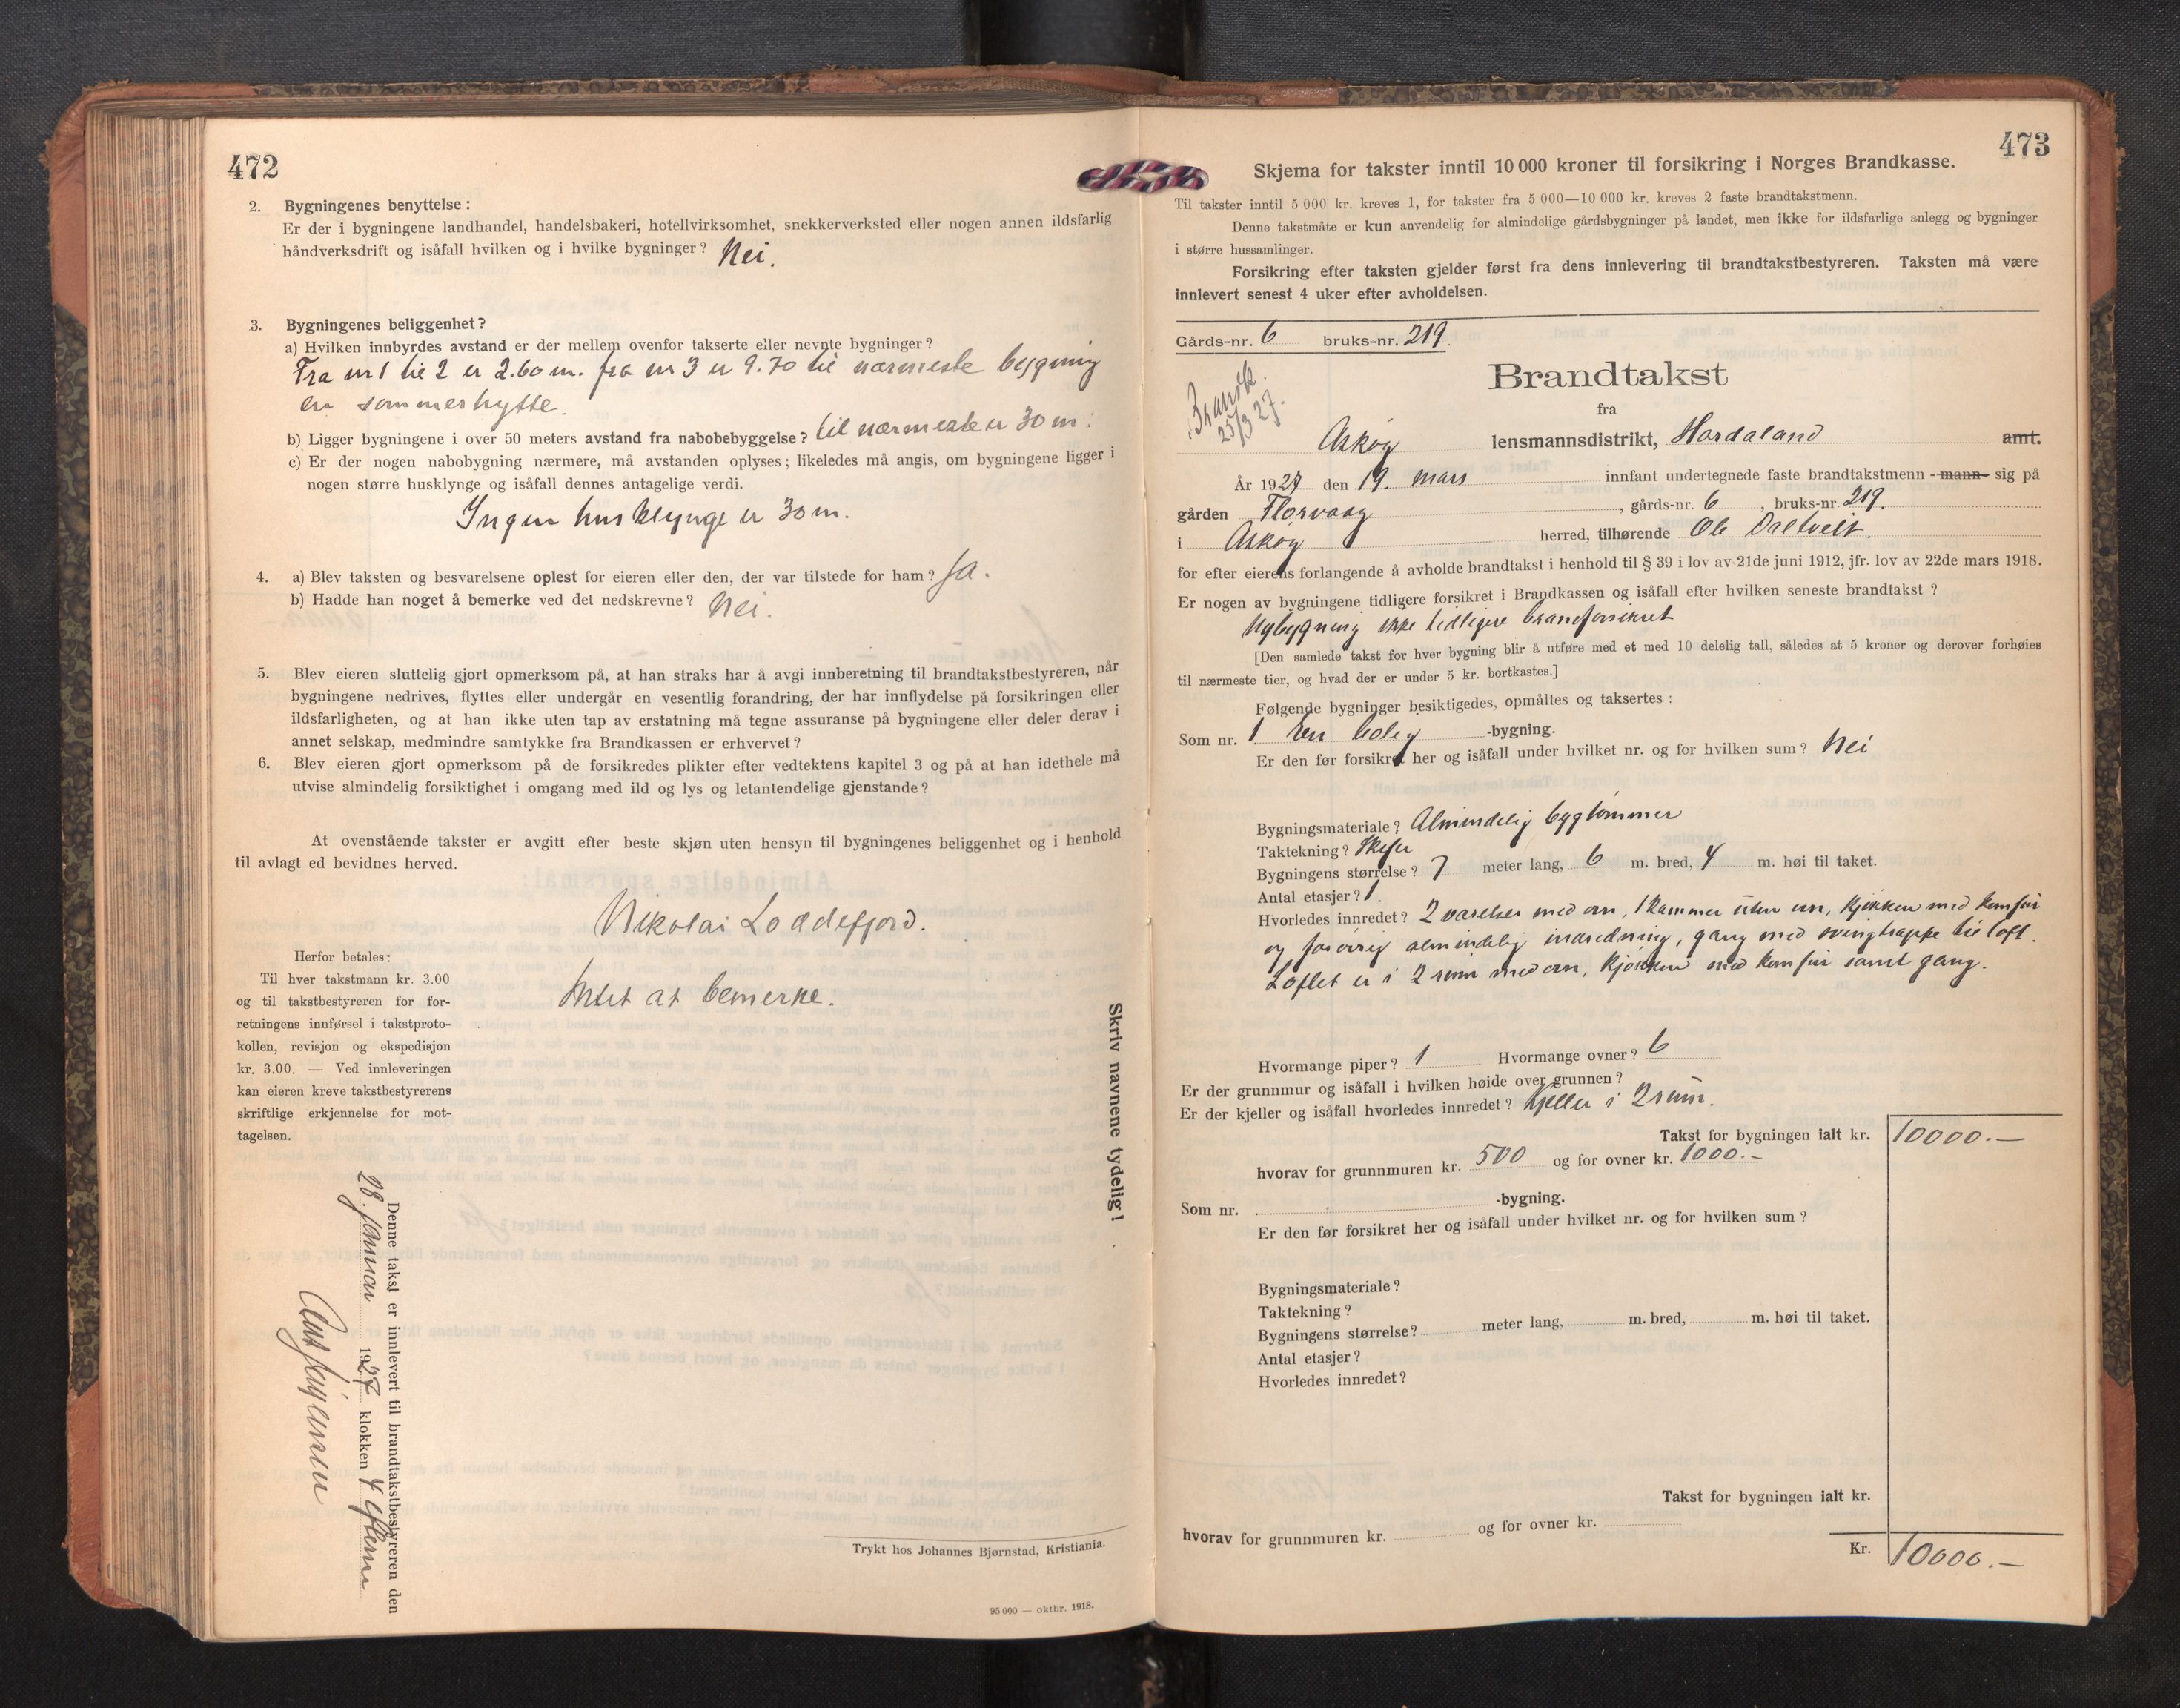 472
2. Bygningenes benyttelse:
Er der i bygningene landhandel, handelsbakeri, hotellvirksomhet, snekkerverksted eller nogen annen ildsfarlig
håndverksdrift og isåfall hvilken og i hvilke bygninger? Nei.
3. Bygningenes beliggenhet?
a) Hvilken innbyrdes avstand er der mellem ovenfor takserte eller nevnte bygninger?
Fra nr 1 til 2 er 2.60 m. fra nr 3 er 9.70 til nærmeste bygning
en sommerhytte.
b) Ligger bygningene i over 50 meters avstand fra nabobebyggelse? til nærmeste er 30 m.
c) Er der nogen nabobygning nærmere, må avstanden oplyses; likeledes må angis, om bygningene ligger i
nogen større husklynge og isåfall dennes antagelige verdi.
Ingen husklynge er 30 m.
4. a) Blev taksten og besvarelsene oplest for eieren eller den, der var tilstede for ham? Ja.
b) Hadde han noget å bemerke ved det nedskrevne? Nei.
5. Blev eieren sluttelig gjort opmerksom på, at han straks har å avgi innberetning til brandtakstbestyreren, når
bygningene nedrives, flyttes eller undergår en vesentlig forandring, der har innflydelse på forsikringen eller
ildsfarligheten, og at han ikke uten tap av erstatning må tegne assuranse på bygningene eller deler derav i
annet selskap, medmindre samtykke fra Brandkassen er erhvervet?
6. Blev eieren gjort opmerksom på de forsikredes plikter efter vedtektens kapitel 3 og på at han idethele må
utvise almindelig forsiktighet i omgang med ild og lys og letantendelige gjenstande?
At ovenstående takster er avgitt efter beste skjøn uten hensyn til bygningenes beliggenhet og i henhold
til avlagt ed bevidnes herved.
Nikolai Loddefjord.
Intet at bemerke.
Herfor betales:
Til hver takstmann kr. 3.00
og til takstbestyreren for for-
retningens innførsel i takstproto-
kollen, revisjon og ekspedisjon
kr. 3.00. — Ved innleveringen
kan eieren kreve takstbestyrerens
skriftlige erkjennelse for mot-
tagelsen.
Skriv navnene tydelig!
Denne takst er innlevert til brandtakstbestyreren den
28. januar 1927 klokken 4 efterm
Trykt hos Johannes Bjørnstad, Kristiania.
95 000 — oktbr. 1918.
473
Skjema for takster inntil 10 000 kroner til forsikring i Norges Brandkasse.
Til takster inntil 5 000 kr. kreves 1, for takster fra 5 000—10 000 kr. kreves 2 faste brandtakstmenn.
Denne takstmåte er kun anvendelig for almindelige gårdsbygninger på landet, men ikke for ildsfarlige anlegg og bygninger
i større hussamlinger.
Forsikring efter taksten gjelder først fra dens innlevering til brandtakstbestyreren. Taksten må være
innlevert senest 4 uker efter avholdelsen.
Gårds-nr. 6 bruks-nr. 219.
Brandtakst
Brandk.
25/3 27.
fra
Askøy lensmannsdistrikt, Hordaland amt.
År 1927 den 19. mars innfant undertegnede faste brandtakstmenn - mann - sig på
gården Florvaag, gårds-nr. 6, bruks-nr 219.
i Askøy herred, tilhørende Ole Daltveit.
for efter eierens forlangende å avholde brandtakst i henhold til § 39 i lov av 21de juni 1912, jfr. lov av 22de mars 1918.
Er nogen av bygningene tidligere forsikret i Brandkassen og isåfall efter hvilken seneste brandtakst?
Nybygning ikke tidligere brandforsikret
[Den samlede takst for hver bygning blir å utføre med et med 10 delelig tall, således at 5 kroner og derover forhøies
til nærmeste tier, og hvad der er under 5 kr. bortkastes.]
Følgende bygninger besiktigedes, opmåltes og taksertes:
Som nr. 1. En bolig -bygning.
Er den før forsikret her og isåfall under hvilket nr. og for hvilken sum? Nei
Bygningsmateriale? Almindelig bygtømmer
Taktekning? Skifer
Bygningens størrelse? 7 meter lang, 6 m. bred, 4 m. høi til taket.
Antal etasjer? 1.
Hvorledes innredet? 2 værelser med ovn, 1 kammer uten ovn, kjøkken med komfur
og forøvrig almindelig indredning, gang med svingtrappe til loft.
Loftet er i 2 rum med ovn, kjøkken med komfur samt gang.
Hvormange piper? 1 Hvormange ovner? 6
Er der grunnmur og isåfall i hvilken høide over grunnen?
Er der kjeller og isåfall hvorledes innredet? kjeller i 2 rum.
Takst for bygningen ialt kr. 10000.—
hvorav for grunnmuren kr. 500 og for ovner kr. 1000.—
Som nr. -bygning.
Er den før forsikret her og isåfall under hvilket nr. og for hvilken sum?
Bygningsmateriale?
Taktekning?
Bygningens størrelse? meter lang, m. bred, m. høi til taket.
Antal etasjer?
Hvorledes innredet?
Takst for bygningen ialt kr.
hvorav for grunnmuren kr. og for ovner kr.
Kr. 10000.—